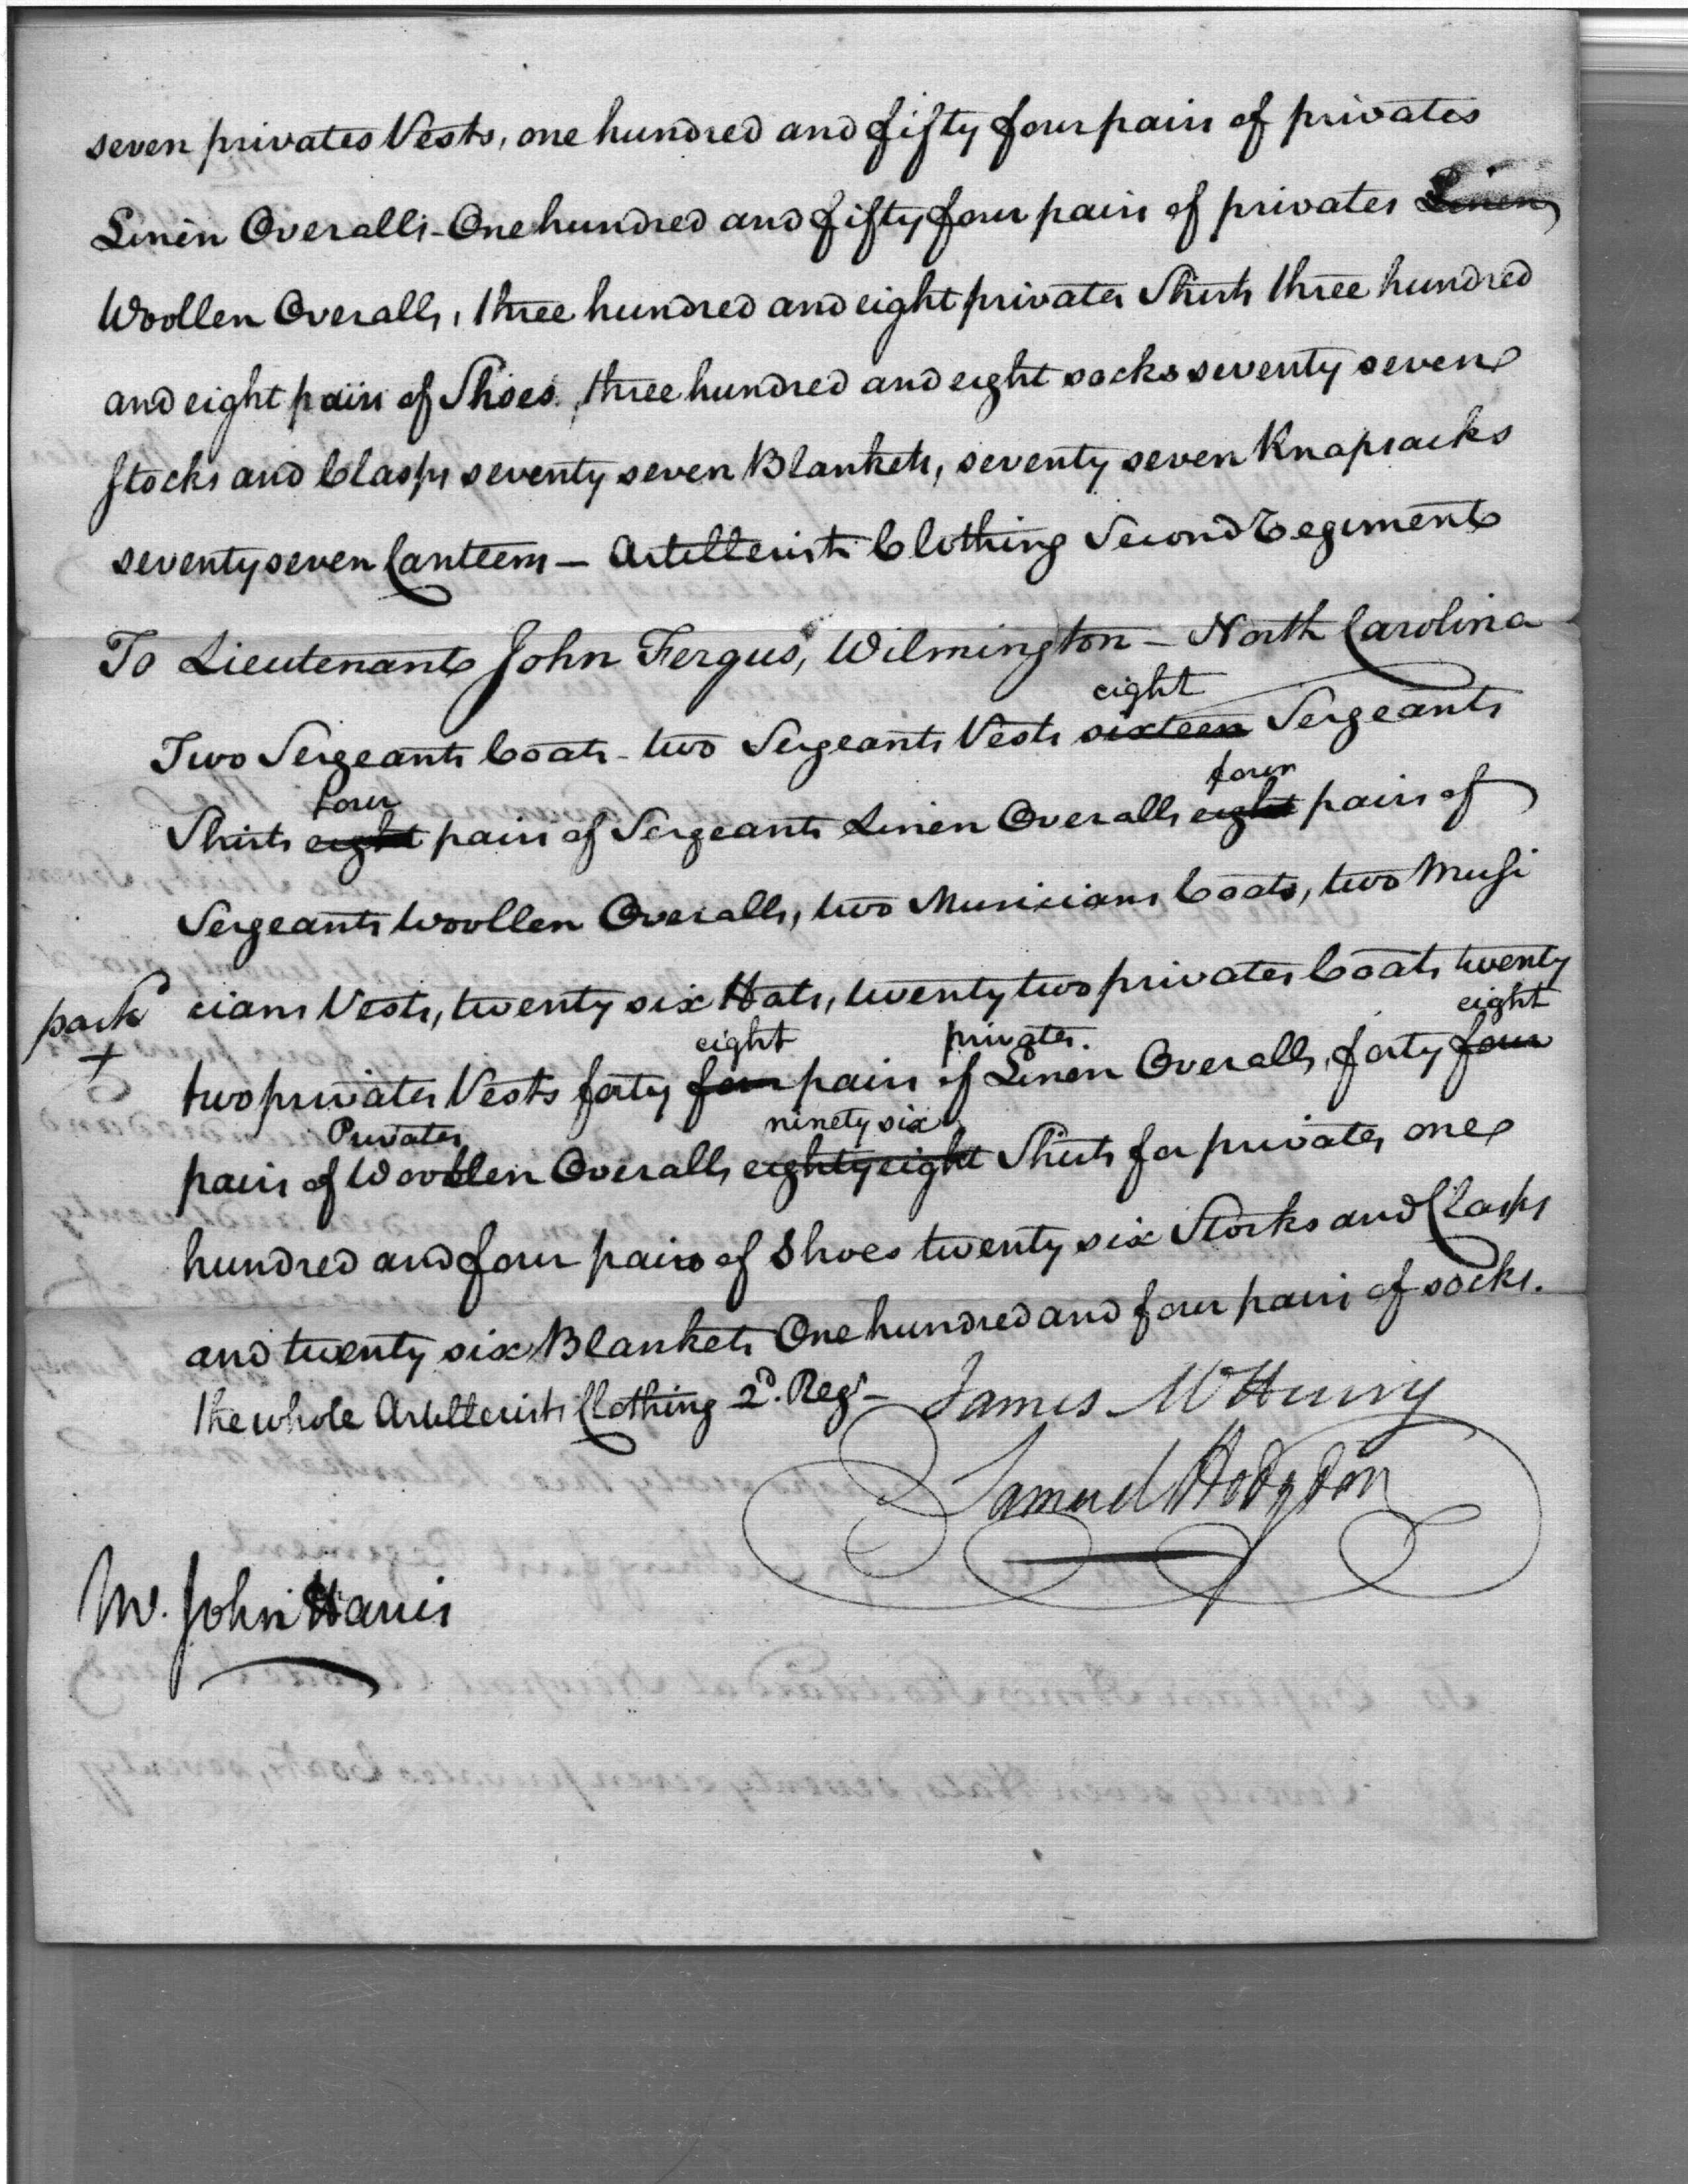 seven privates Vests, one hundred and fifty four pairs of privates
Linen Overalls - One hundred and fifty four pairs of privates Linen
Woollen Overalls, three hundred and eight privates Shirts three hundred
and eight pairs of Shoes, three hundred and eight socks seventy seven
stocks and Clasps seventy seven Blankets, seventy seven Knapsacks
seventy seven Canteens - Artillerists Clothing Second Regiment
To Lieutenant John Fergus, Wilmington - North Carolina
eight
Two Sergeants Coats - two Sergeants Vests sixteen Sergeants
four four
Shirts eight pairs of Sergeants Linen Overalls eight pairs of
Sergeants Woollen Overalls, two Musicians Coats, two Musi
pack cians Vests, twenty six Hats, twenty two privates Coats twenty
+ eight privates. eight
two privates Vests forty four pairs of Linen Overalls, forty four
Privates ninety six
pairs of Woollen Overalls eighty eight Shirts for privates one
hundred and four pairs of Shoes twenty six Stocks and Clasps
and twenty six Blankets One hundred and four pairs of socks.
the whole Artillerists Clothing 2d. Regt -
James McHenry
Samuel Hodgdon
Mr. John Harris